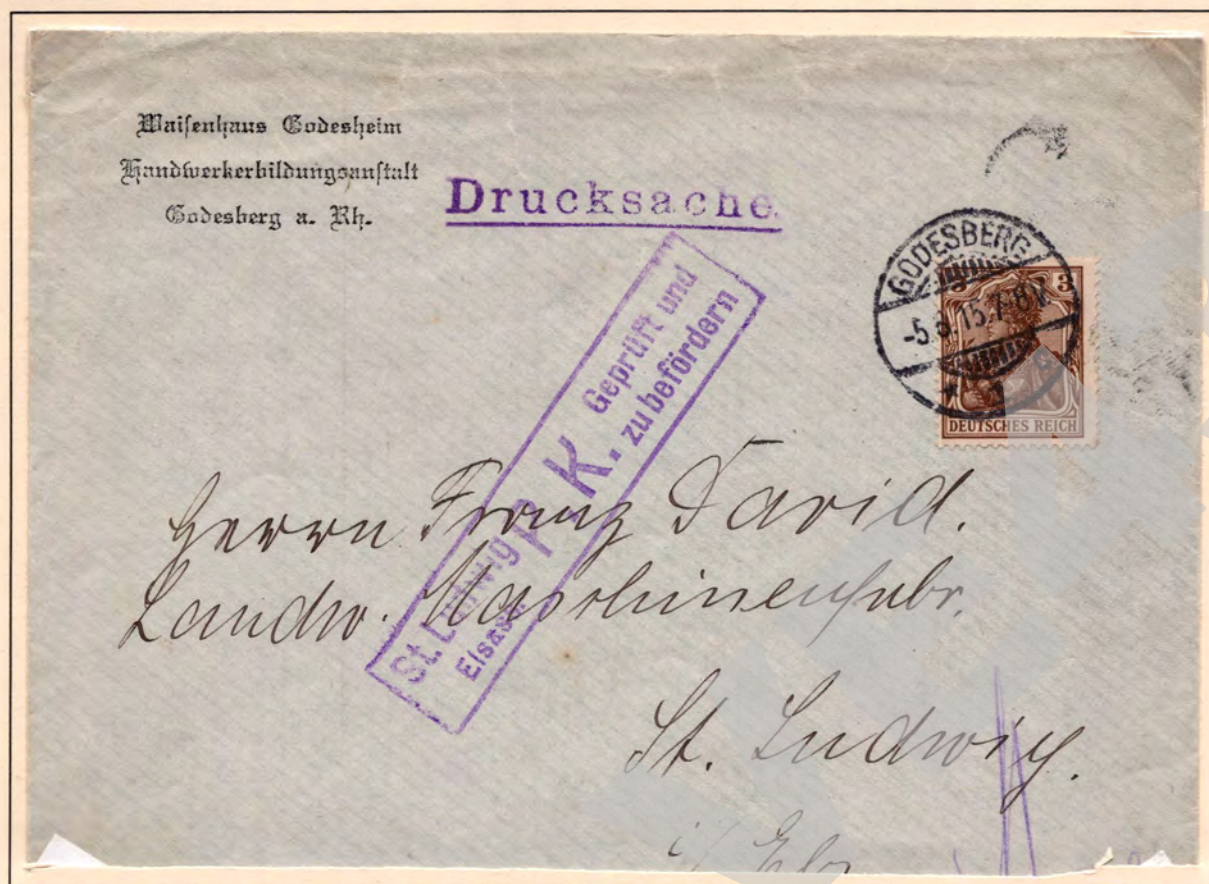 Waisenhaus Godesheim
Handwerkerbildungsanstalt
Godesberg a. Rh.
Drucksache.
GODESBERG
-5. 15.7-8V.
3
DEUTSCHES REICH
St. Ludwig P. K. Geprüft und
Elsass. zu befördern
Herrn Franz David.
Landw. Maschinenfabr.
St. Ludwig.
i/ Els